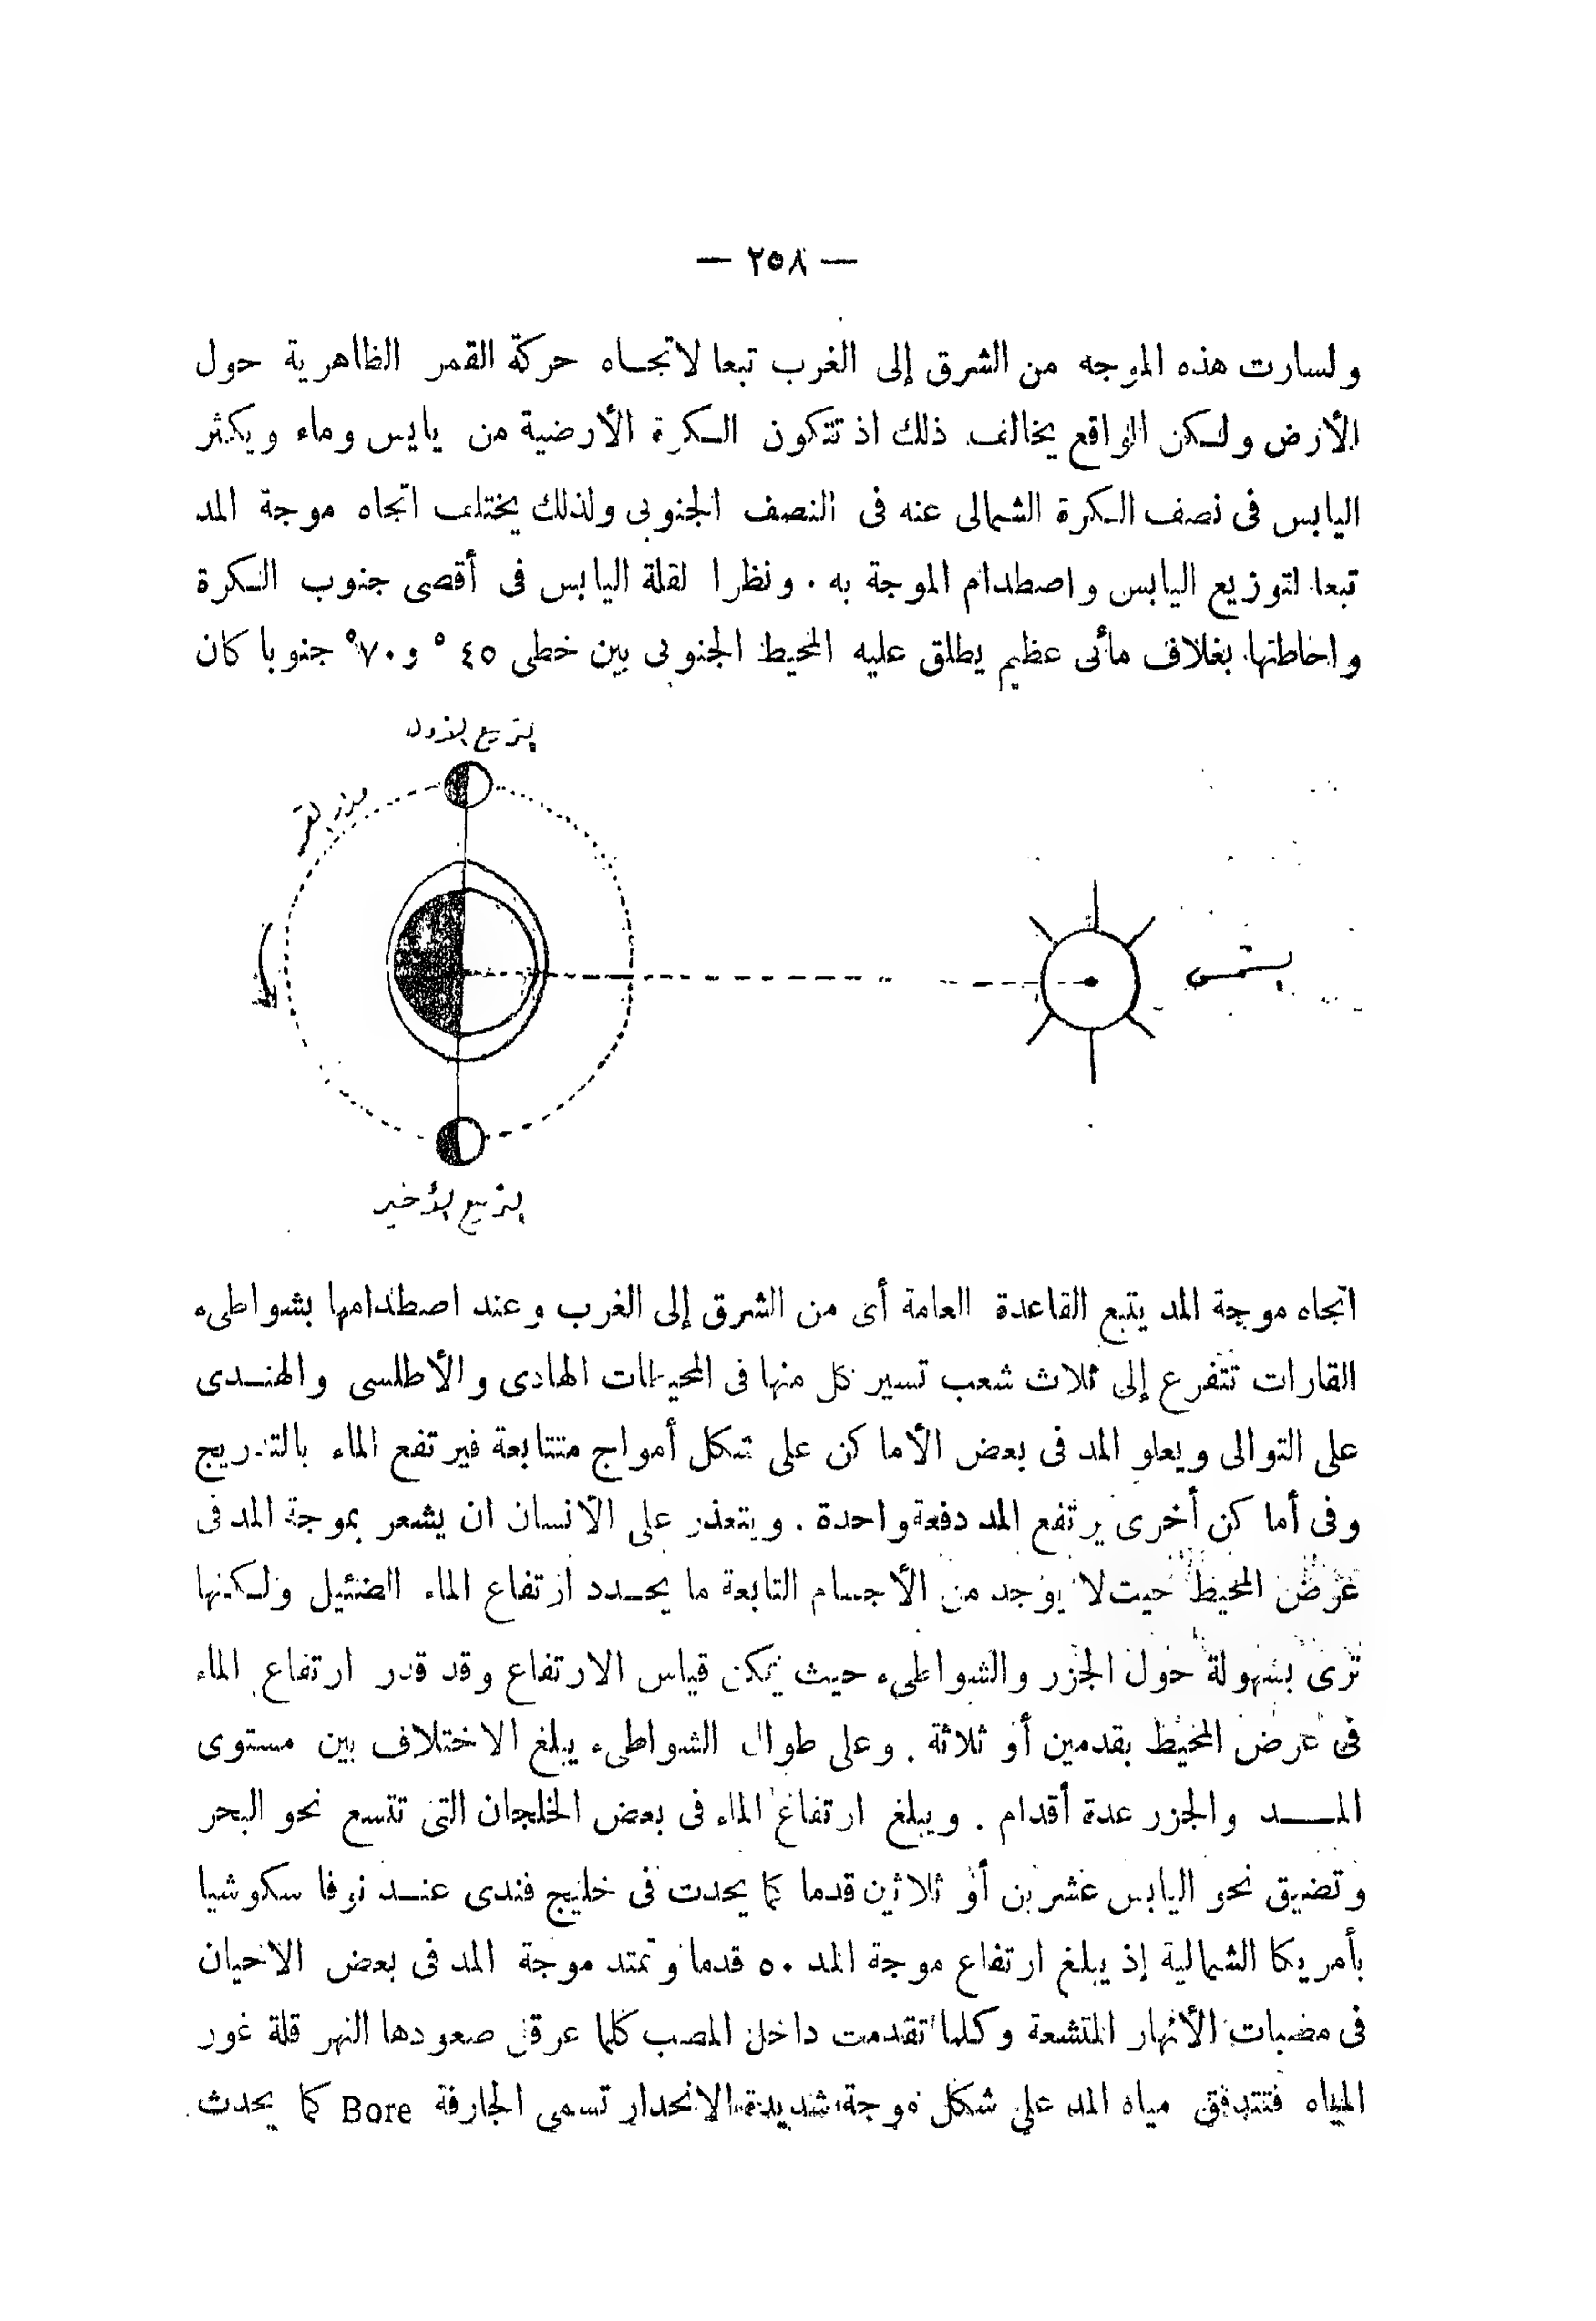 — ٢٥٨ —
ولسارت هذه الموجه من الشرق إلى الغرب تبعا لاتجاه حركة القمر الظاهرية حول
الأرض ولكن الواقع يخالف ذلك اذ تتكون الكرة الأرضية من يابس وماء ويكثر
اليابس فى نصف الكرة الشمالى عنه فى النصف الجنوبى ولذلك يختلف اتجاه موجة المد
تبعا لتوزيع اليابس واصطدام الموجة به . ونظرا لقلة اليابس فى أقصى جنوب الكرة
واحاطتها بغلاف مائى عظيم يطلق عليه المحيط الجنوبى بين خطى ٤٥ ° و ٧٠° جنوبا كان
التربيع الأول
مدار القمر
الشمس
التربيع الأخير
اتجاه موجة المد يتبع القاعدة العامة أى من الشرق إلى الغرب وعند اصطدامها بشواطىء
القارات تتفرع إلى ثلاث شعب تسير كل منها فى المحيطات الهادى والأطلسى والهندى
على التوالى ويعلو المد فى بعض الأماكن على شكل أمواج متتابعة فيرتفع الماء بالتدريج
وفى أماكن أخرى يرتفع المد دفعة واحدة . ويتعذر على الانسان ان يشعر بموجة المد فى
عرض المحيط حيث لا يوجد من الأجسام التابعة ما يحدد ارتفاع الماء الضئيل ولكنها
ترى بسهولة حول الجزر والشواطىء حيث يمكن قياس الارتفاع وقد قدر ارتفاع الماء
فى عرض المحيط بقدمين أو ثلاثة . وعلى طوال الشواطىء يبلغ الاختلاف بين مستوى
المد والجزر عدة أقدام . ويبلغ ارتفاع الماء فى بعض الخلجان التى تتسع نحو البحر
وتضيق نحو اليابس عشرين أو ثلاثين قدما كما يحدث فى خليج فندى عند نوفا سكوشيا
بأمريكا الشمالية إذ يبلغ ارتفاع موجة المد ٥٠ قدما وتمتد موجة المد فى بعض الاحيان
فى مصبات الأنهار المتشعة وكلما تقدمت داخل المصب كلما عرقل صعودها النهر قلة غور
المياه فتتدفق مياه المد على شكل موجة شديدة الانحدار تسمى الجارفة Bore كما يحدث